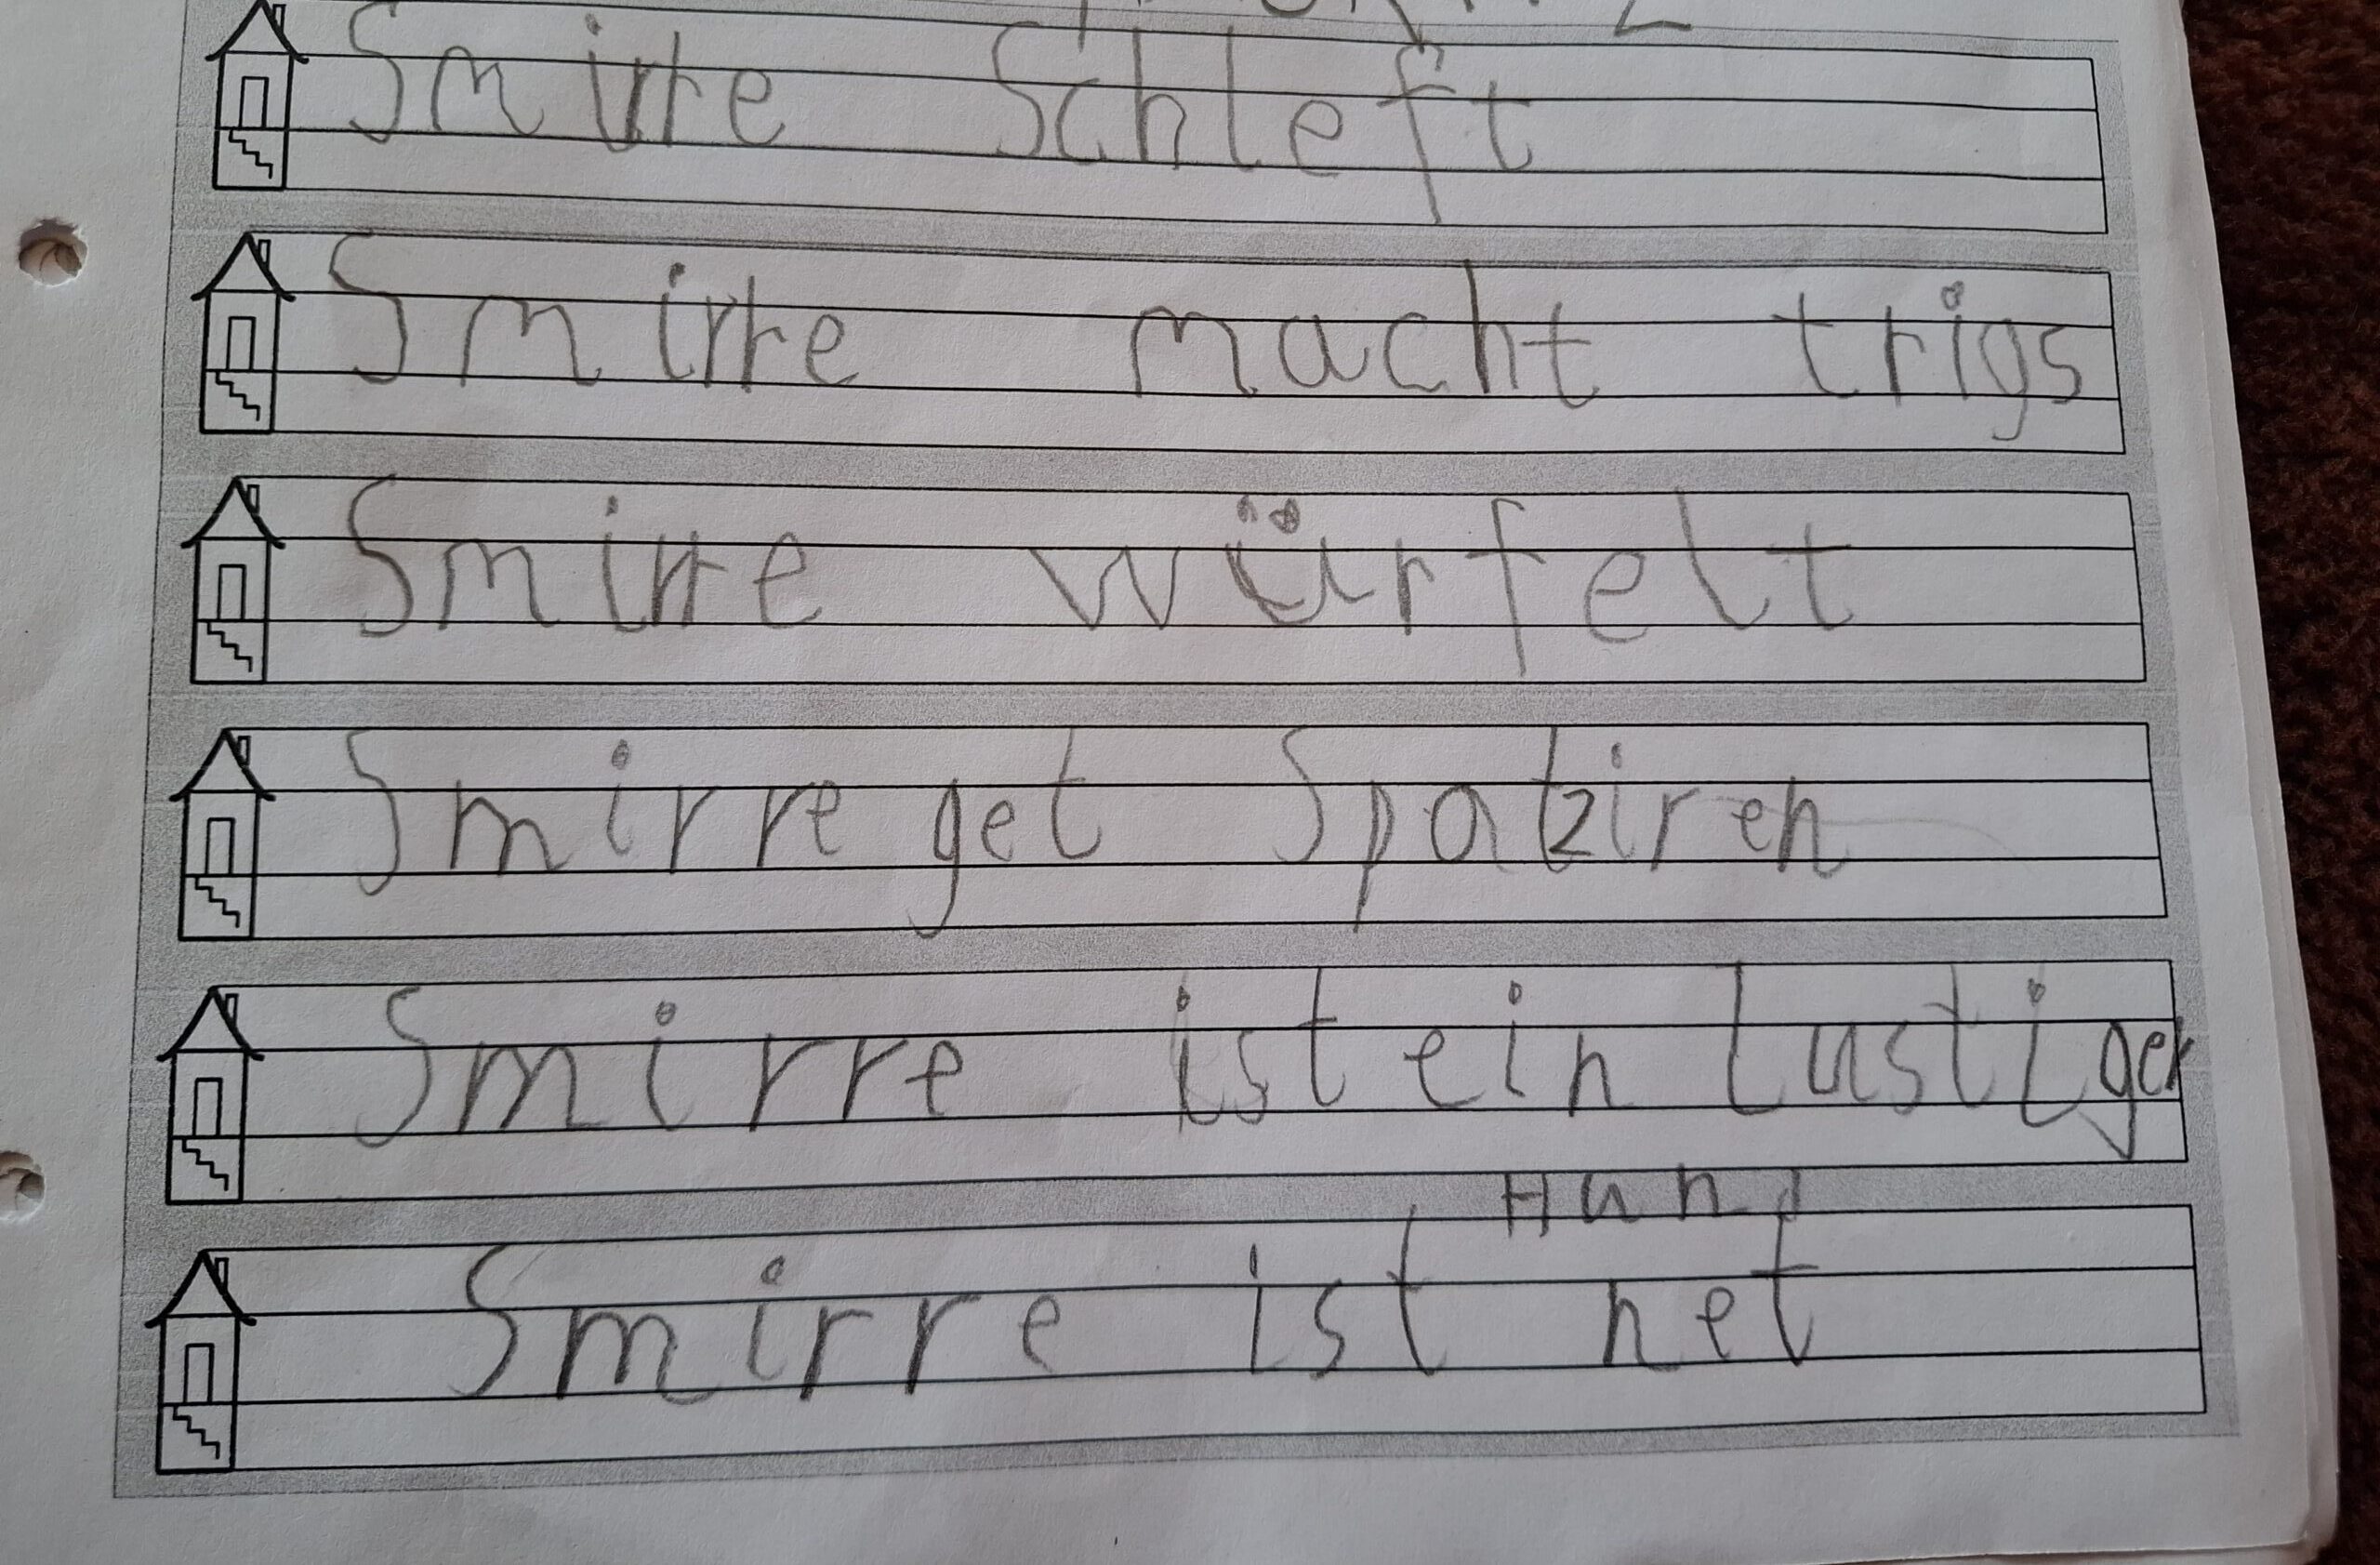 Smirre Schleft
Smirre macht trigs
Smirre würfelt
Smirre get Spatziren
Smirre ist ein lustiger
Hund
Smirre ist net